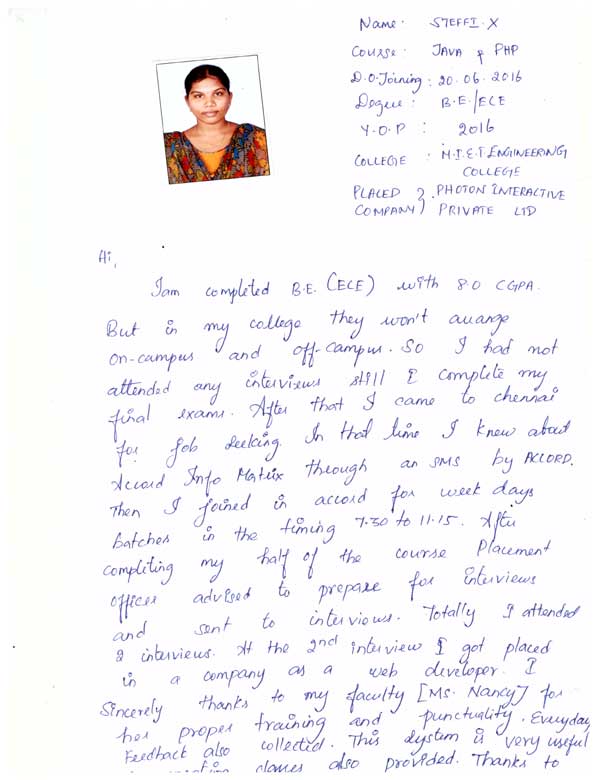 Name: STEFFI.X
Course: JAVA & PHP
D.O.Joining: 20.06.2016
Degree: B.E./ECE
Y.O.P: 2016
COLLEGE: M.I.E.T.ENGINEERING
COLLEGE
PLACED } PHOTON INTERACTIVE
COMPANY } PRIVATE LTD
Hi,
Iam completed B.E. (ECE) with 8.0 CGPA.
But in my college they won't arrange
on-campus and off-campus. So I had not
attended any interviews still I complete my
final exams. After that I came to chennai
for job seeking. In that time I knew about
Accord Info Matrix through an SMS by ACCORD.
Then I joined in accord for week days
batches in the timing 7.30 to 11.15. After
completing my half of the course Placement
officer advised to prepare for Interviews
and sent to interviews. Totally I attended
2 interviews. At the 2nd interview I got placed
in a company as a web developer. I
Sincerely thanks to my faculty [Ms. Nancy] for
her proper training and punctuality. Everyday
Feedback also collected. This system is very useful
classes also provided. Thanks to